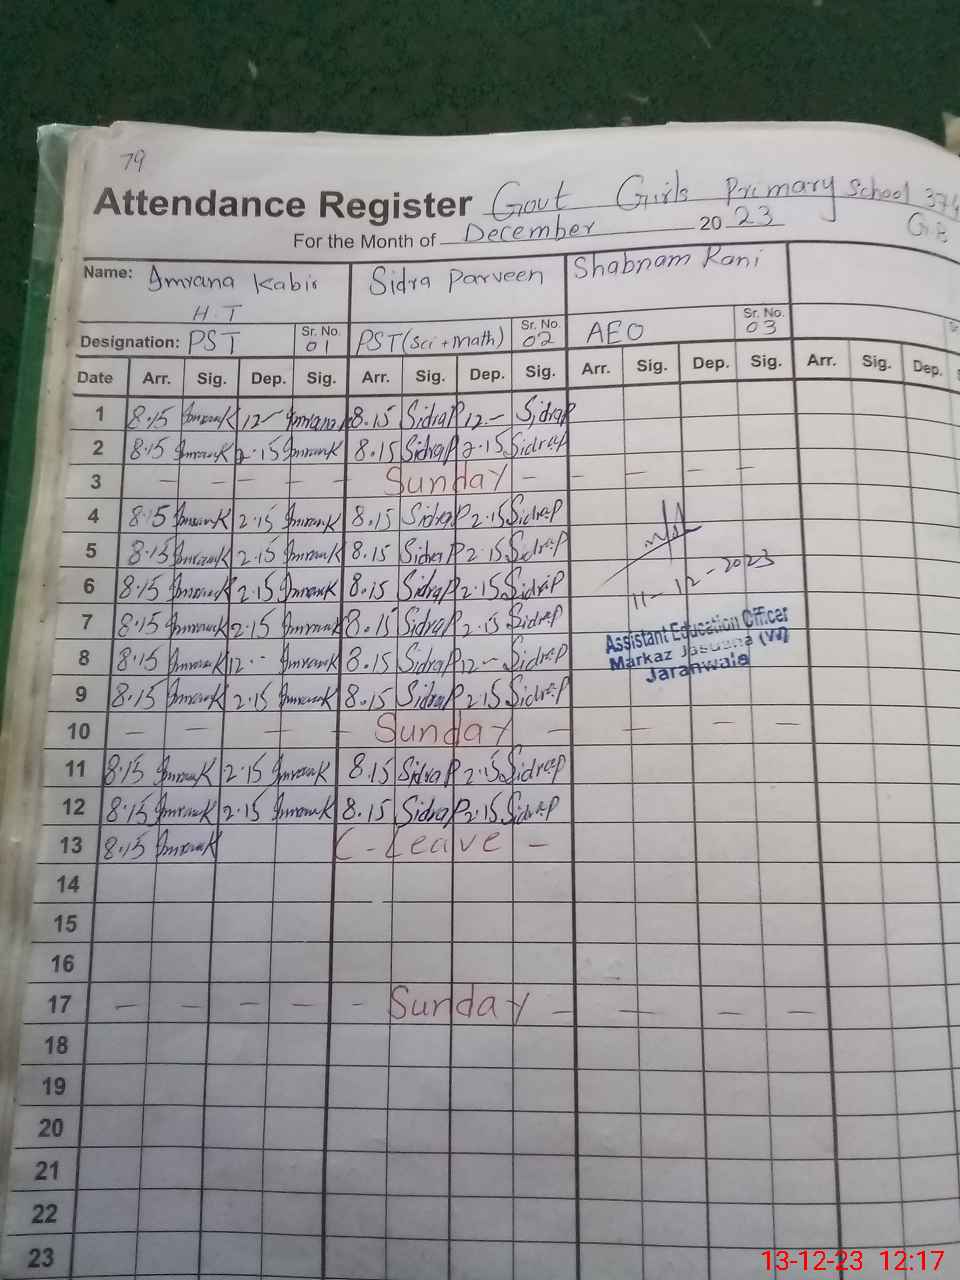 79
Attendance Register Govt Girls Primary School 374
G.B
For the Month of December 2023
Name: Imrana Kabir Sidra Parveen Shabnam Rani
H.T
Designation: PST Sr. No. 01 PST (Sci + Math) Sr. No. 02 AEO Sr. No. 03
Date Arr. Sig. Dep. Sig. Arr. Sig. Dep. Sig. Arr. Sig. Dep. Sig. Arr. Sig. Dep.
1 8.15 ImranaK 12- Imrana K 8.15 SidraP 12.- SidraP
2 8.15 ImranaK 2.15 ImranaK 8.15 SidraP 2.15 SidraP
3 - - - - - Sunday - - - - -
4 8.15 ImranaK 2.15 ImranaK 8.15 SidraP 2.15 SidraP
5 8.15 ImranaK 2.15 ImranaK 8.15 SidraP 2.15 SidraP
6 8.15 ImranaK 2.15 ImranaK 8.15 SidraP 2.15 SidraP
11-12-2023
7 8.15 ImranaK 2.15 ImranaK 8.15 SidraP 2.15 SidraP
Assistant Education Officer
8 8.15 ImranaK 12.- ImranaK 8.15 SidraP 12- SidraP
Markaz Jasuana (W)
Jaranwala
9 8.15 ImranaK 2.15 ImranaK 8.15 SidraP 2.15 SidraP
10 - - - - Sunday - - - -
11 8.15 ImranaK 2.15 ImranaK 8.15 SidraP 2.15 SidraP
12 8.15 ImranaK 2.15 ImranaK 8.15 SidraP 2.15 SidraP
13 8.15 ImranaK C-Leave -
14
15
16
17 - - - - - Sunday - - - -
18
19
20
21
22
23
13-12-23 12:17